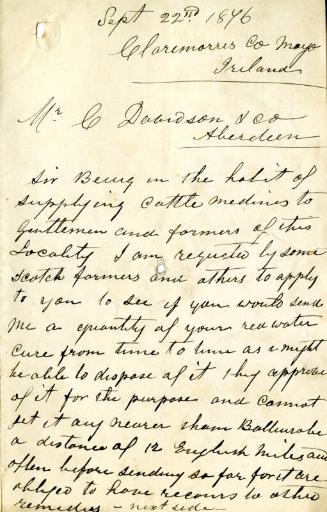 Sept 22nd 1896
Claremorris Co Mayo
Ireland
Mr C Davidson & Co
Aberdeen
Sir Being in the habit of
supplying cattle medines to
Gentlemen and farmers of this
Locality I am requested by some
Scotch farmers and others to apply
to you to see if you would send
me a quantity of your redwater
cure from time to time as i might
be able to dispose of it they approve
of it for the purpose and cannot
get it any nearer than Ballinrobe
a distance of 12 English miles and
often before sending so far for it are
obliged to have recours to other
remedies - next side -